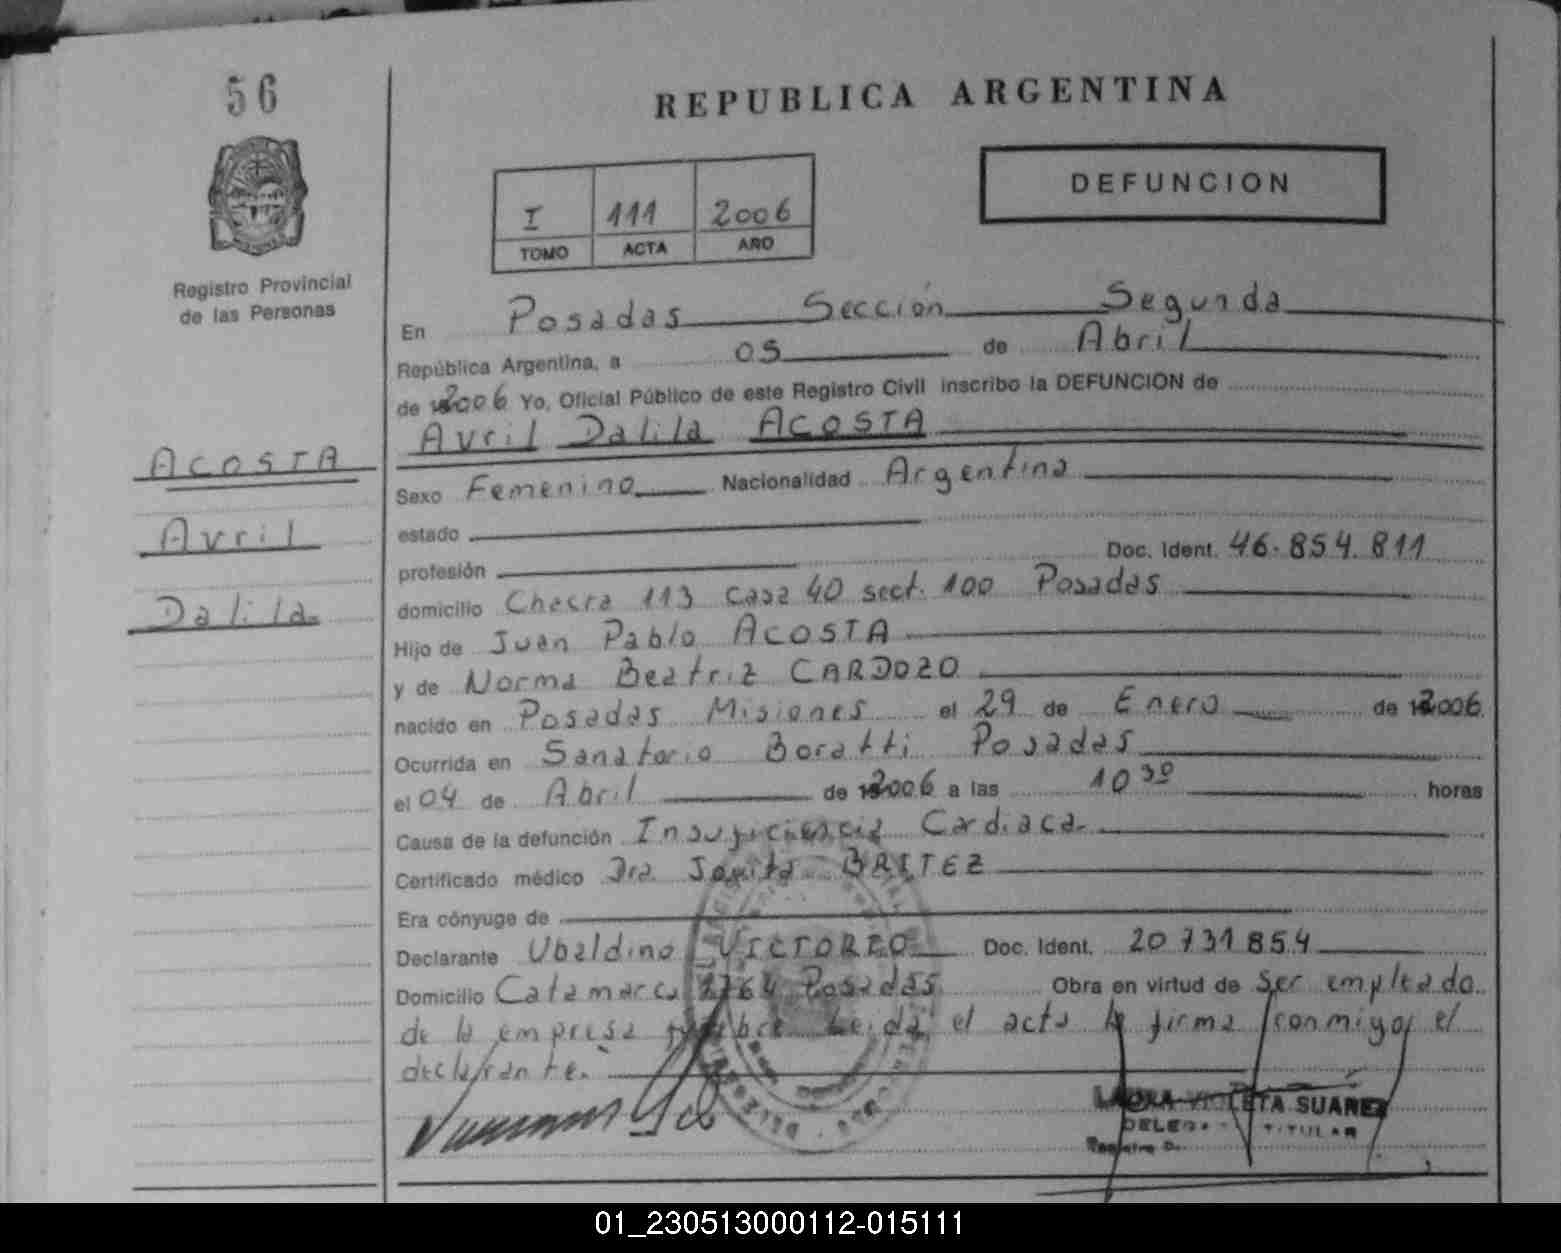 56
REPUBLICA ARGENTINA
DEFUNCION
I 111 2006
TOMO ACTA AÑO
Registro Provincial
de las Personas
En Posadas Sección Segunda
República Argentina, a 05 de Abril
de 2006 Yo, Oficial Público de este Registro Civil inscribo la DEFUNCION de
Avril Dalila ACOSTA
ACOSTA
Avril
Dalila
Sexo Femenino Nacionalidad Argentina
estado
profesión Doc. Ident. 46.854.811
domicilio Chacra 113 casa 40 sect. 100 Posadas
Hijo de Juan Pablo ACOSTA
y de Norma Beatriz CARDOZO
nacido en Posadas Misiones el 29 de Enero de 2006
Ocurrida en Sanatorio Boratti Posadas
el 04 de Abril de 2006 a las 10 30 horas
Causa de la defunción Insuficiencia Cardiaca
Certificado médico Dra. BRITEZ
Era cónyuge de
Declarante Ubaldino VICTORIO Doc. Ident. 20 731 854
Domicilio Catamarca 1764 Posadas Obra en virtud de ser empleado
de la empresa fúnebre Leida el acta la firma conmigo el
declarante.
LAURA VIOLETA SUAREZ
DELEGADA TITULAR
01_230513000112-015111